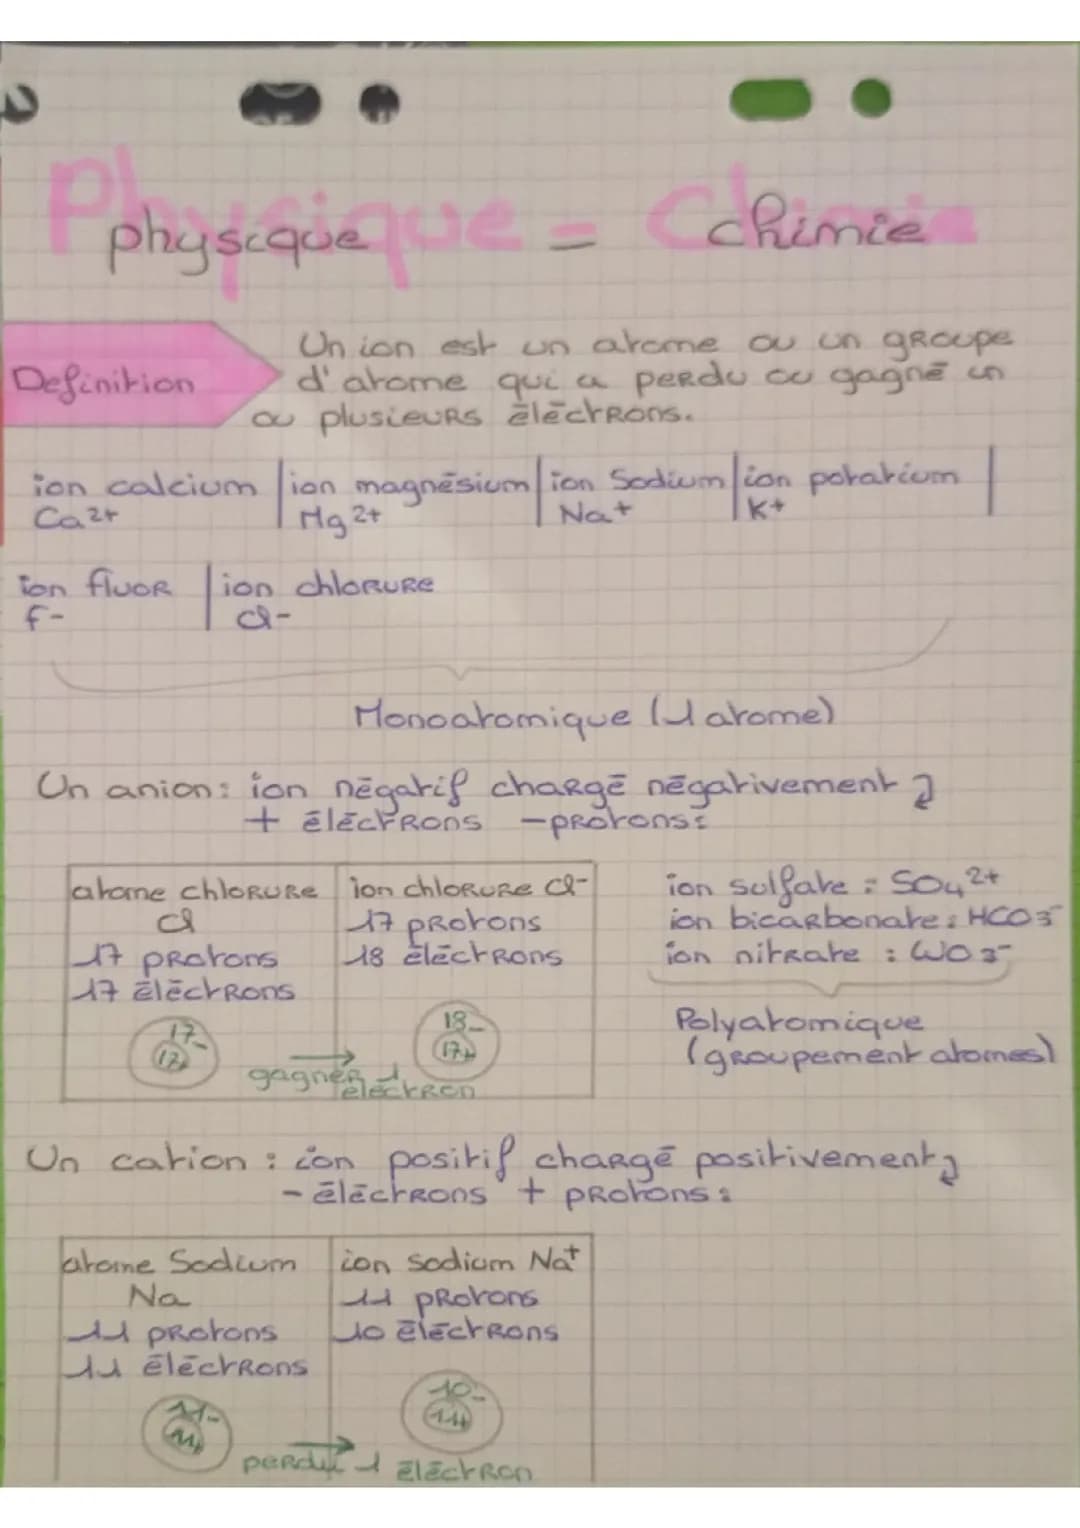 Physique - Chimie
physique chimie
Un ion est un atome ou un groupe
Definition d'atome qui a perdu ou gagné un
ou plusieurs éléctrons.
ion calcium | ion magnésium | ion Sodium | ion potatium |
Ca2+ | Mg2+ | Na+ | K+
ion fluor | ion chlorure
F- | Cl-
Monoatomique (1 atome)
Un anion : ion négatif chargé négativement
+ éléctrons - protons :
atome chlorure | ion chlorure Cl-
Cl | 17 protons
17 protons | 18 éléctrons
17 éléctrons
17- 18-
17+ 17+
gagner 1
électron
ion sulfate : SO4 2+
ion bicarbonate : HCO3-
ion nitrate : WO3-
Polyatomique
(groupement atomes)
Un cation : ion positif chargé positivement
- éléctrons + protons :
atome Sodium | ion sodium Na+
Na | 11 protons
11 protons | 10 éléctrons
11 éléctrons
11- 10-
11+ 11+
perdu 1 éléctron